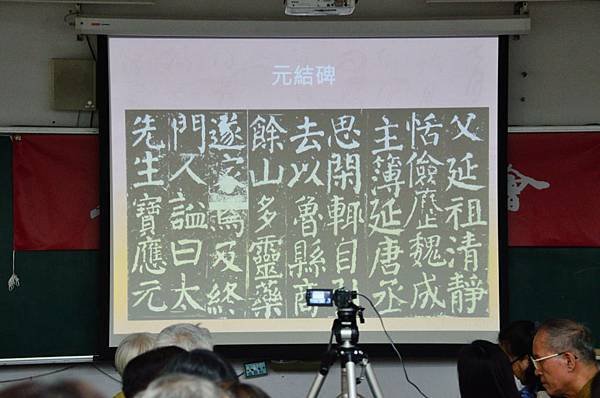 元結碑
父延祖清靜
恬儉歷魏成
主簿延唐丞
思閑輒自引
去以魯縣商
餘山多靈藥
遂家焉及終
門人謚曰太
先生寶應元
會